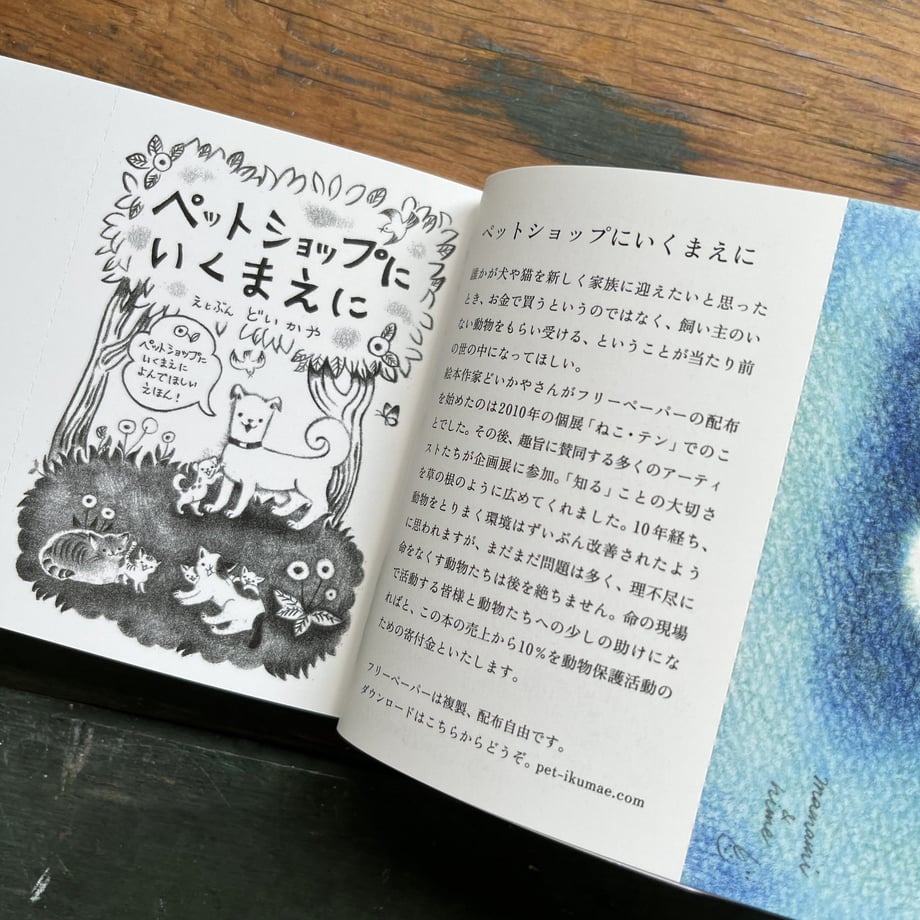 ペットショップに
いくまえに
えとぶん どいかや
ペットショップに
いくまえに
よんでほしい
えほん!
ペットショップにいくまえに
誰かが犬や猫を新しく家族に迎えたいと思った
とき、お金で買うというのではなく、飼い主のい
ない動物をもらい受ける、ということが当たり前
の世の中になってほしい。
絵本作家どいかやさんがフリーペーパーの配布
を始めたのは2010年の個展「ねこ・テン」でのこ
とでした。その後、趣旨に賛同する多くのアーティ
ストたちが企画展に参加。「知る」ことの大切さ
を草の根のように広めてくれました。10年経ち、
動物をとりまく環境はずいぶん改善されたよう
に思われますが、まだまだ問題は多く、理不尽に
命をなくす動物たちは後を絶ちません。命の現場
で活動する皆様と動物たちへの少しの助けにな
ればと、この本の売上から10%を動物保護活動の
ための寄付金といたします。
フリーペーパーは複製、配布自由です。
ダウンロードはこちらからどうぞ。pet-ikumae.com
manami
&
hime